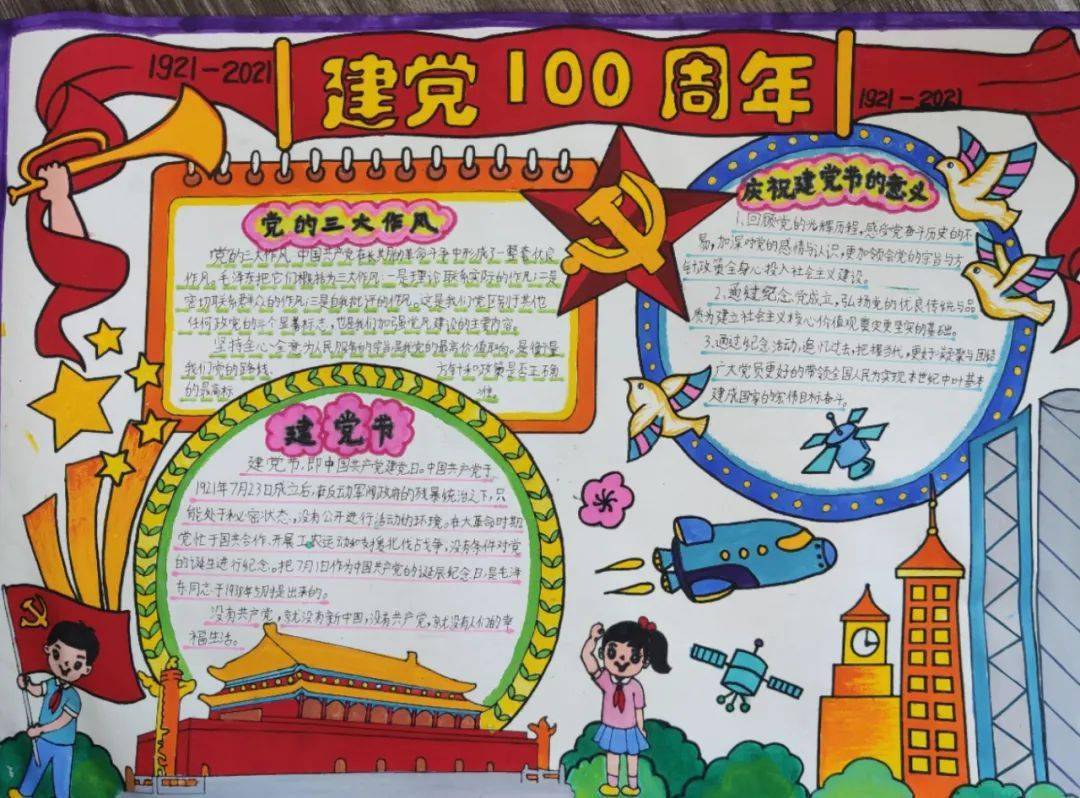 1921-2021
建党100周年
1921-2021
党的三大作风
党的三大作风,中国共产党在长期的革命斗争中形成了一整套优良
作风。毛泽东把它们概括为三大作风:一是理论联系实际的作风;二是
密切联系群众的作风;三是自我批评的作风。这是我们党区别于其他
任何政党的三个显著标志,也是我们加强党风建设的主要内容。
坚持全心全意为人民服务的宗旨是我党的最高价值取向。是衡量
我们党的路线、方针和政策是否正确
的最高标准。
庆祝建党节的意义
1、回顾党的光辉历程,感受党奋斗历史的不
易,加深对党的感情与认识,更加领会党的宗旨与方
针政策全身心投入社会主义建设。
2、通过纪念党成立,弘扬党的优良传统与品
质为建立社会主义核心价值观奠定更坚实的基础。
3.通过纪念活动,追忆过去,把握当代,更好凝聚与团结
广大党员更好的带领全国人民为实现本世纪中叶基本
建成国家的宏伟目标奋斗。
建党节
建党节,即中国共产党建党日。中国共产党于
1921年7月23日成立后,在反动军阀政府的残暴统治之下,只
能处于秘密状态,没有公开进行活动的环境。在大革命时期
党忙于国共合作,开展工农运动和支援北伐战争,没有条件对党
的诞生进行纪念。把7月1日作为中国共产党的诞辰纪念日,是毛泽
东同志于1938年5月时提出来的。
没有共产党,就没有新中国,没有共产党,就没有人们的幸
福生活。